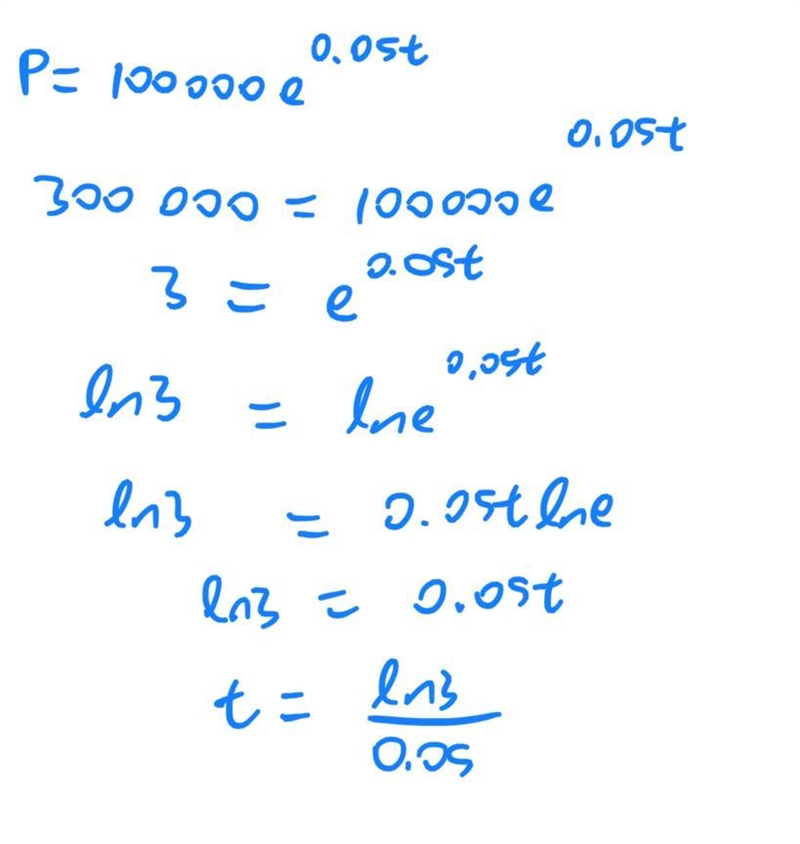 P = 100 000 e^0.05t
300 000 = 100 000 e^0.05t
3 = e^0.05t
ln3 = lne^0.05t
ln3 = 0.05t lne
ln3 = 0.05t
t = ln3/0.05